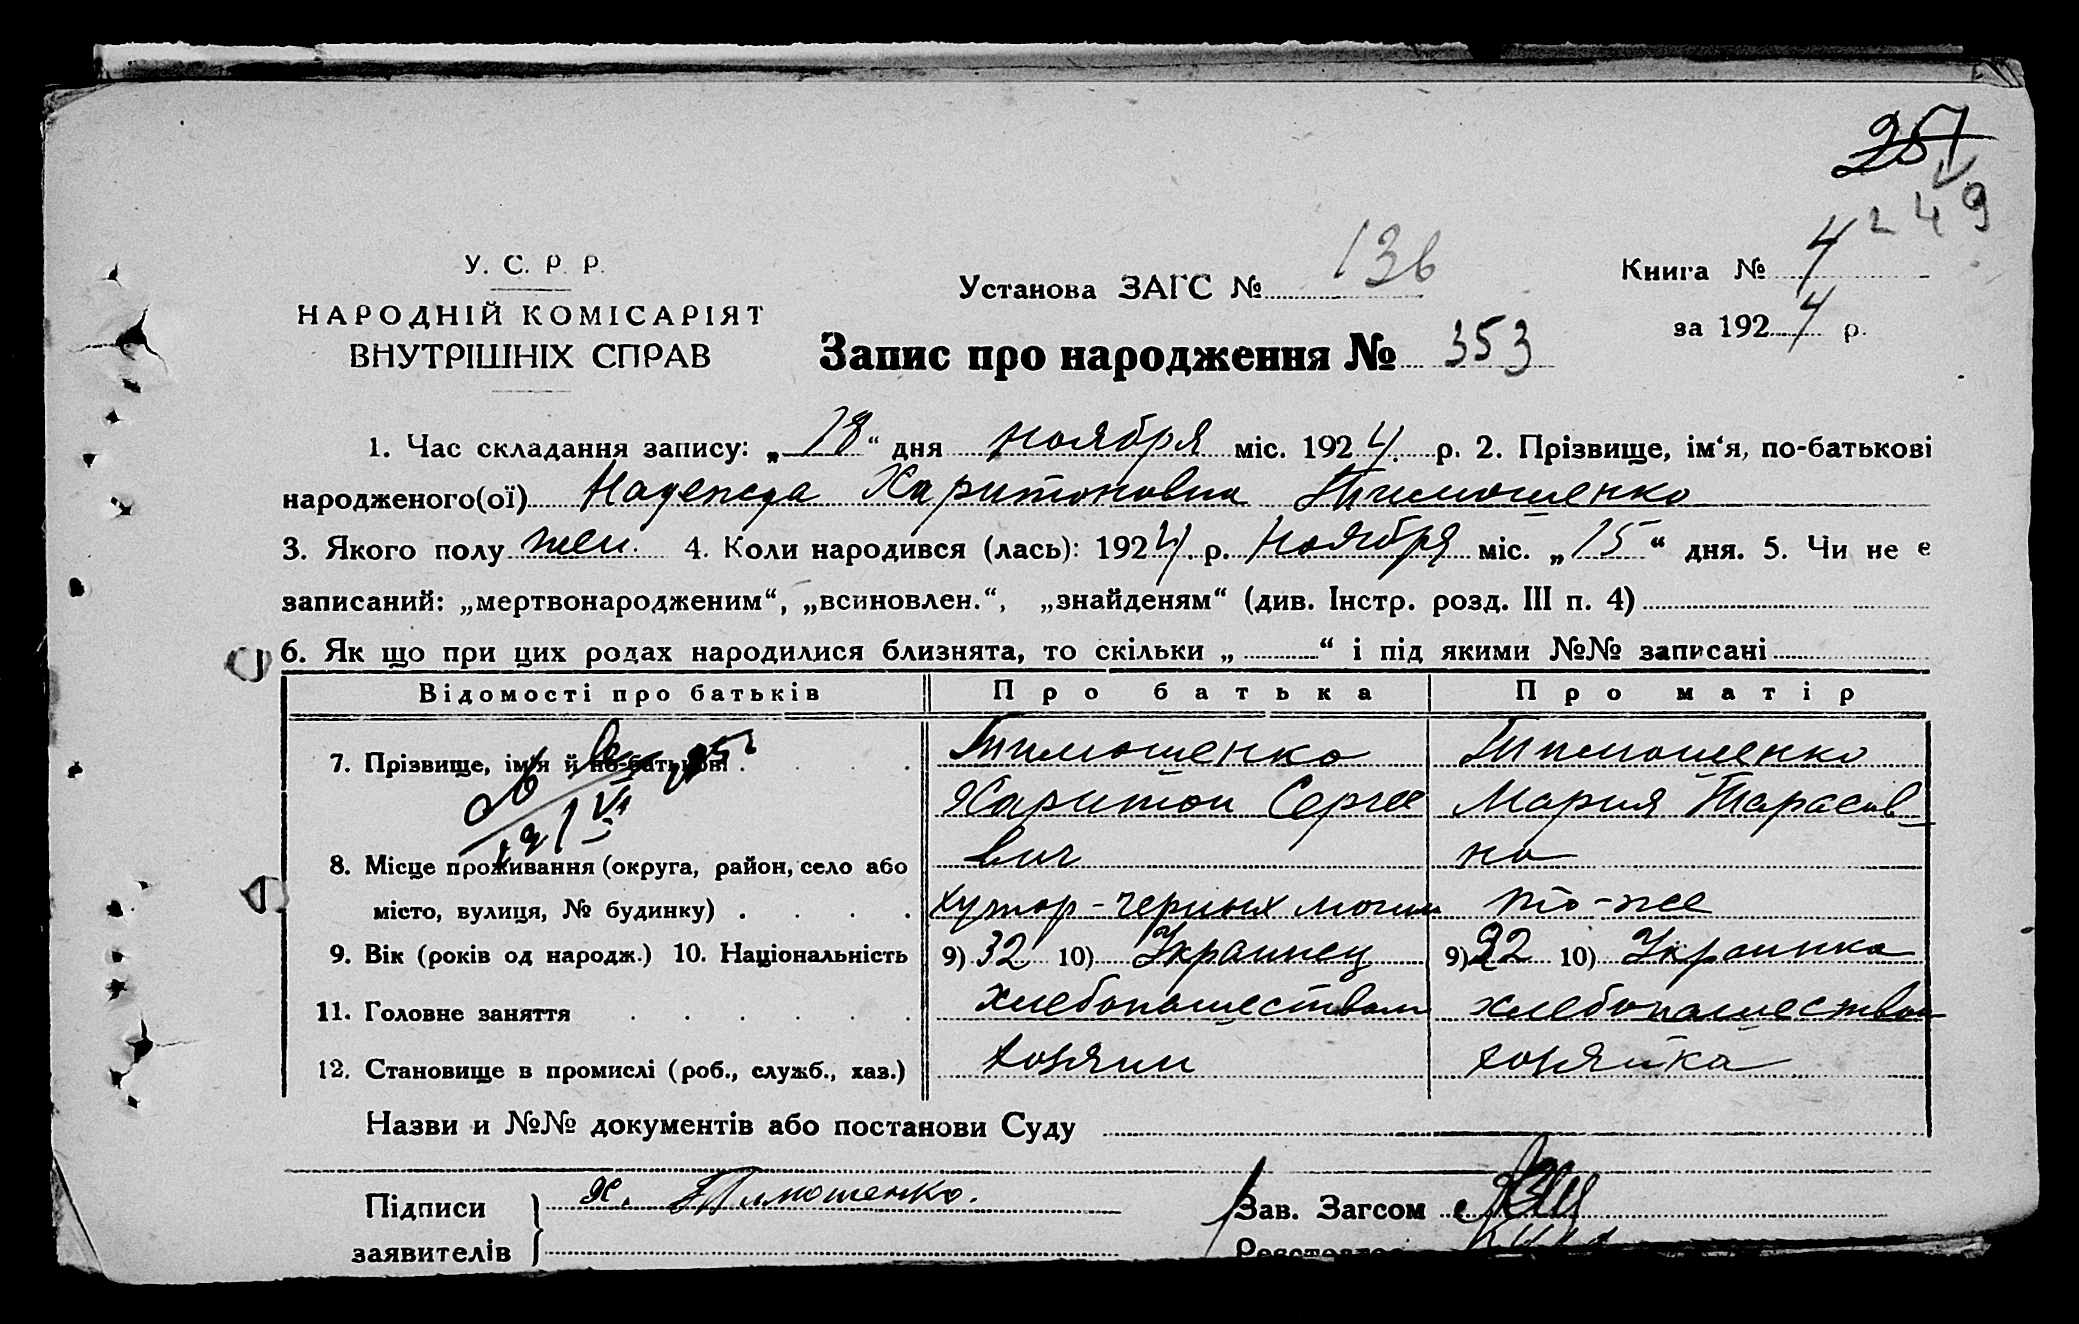 257
249
У. С. Р. Р.
НАРОДНІЙ КОМІСАРІЯТ
ВНУТРІШНІХ СПРАВ
Установа ЗАГС № 136
Книга № 4
за 1924 р.
Запис про народження № 353
1. Час складання запису: „18“ дня ноября міс. 1924 р. 2. Прізвище, ім‘я, по-батькові
народженого(ої) Надежда Харитоновна Тимошенко
3. Якого полу жен. 4. Коли народився (лась): 1924 р. Ноября міс. „15“ дня. 5. Чи не є
записаний: „мертвонародженим“, „всиновлен.“, „знайденям“ (див. Інстр. розд. III п. 4)
6. Як що при цих родах народилися близнята, то скільки „ “ і під якими №№ записані
Відомості про батьків Про батька Про матір
7. Прізвище, ім‘я й по-батькові Тимошенко Тимошенко
Харитон Сергее Мария Тарасов
вич на
8. Місце проживання (округа, район, село або
місто, вулиця, № будинку) хутор-черных могил то-же
9. Вік (років од народж.) 10. Національність 9) 32 10) Украинец 9) 32 10) Украинка
11. Головне заняття хлебопашеством хлебопашеством
12. Становище в промислі (роб., служб., хаз.) хозяин хозяйка
Назви и №№ документів або постанови Суду
Підписи Х. Тимошенко. Зав. Загсом
заявителів